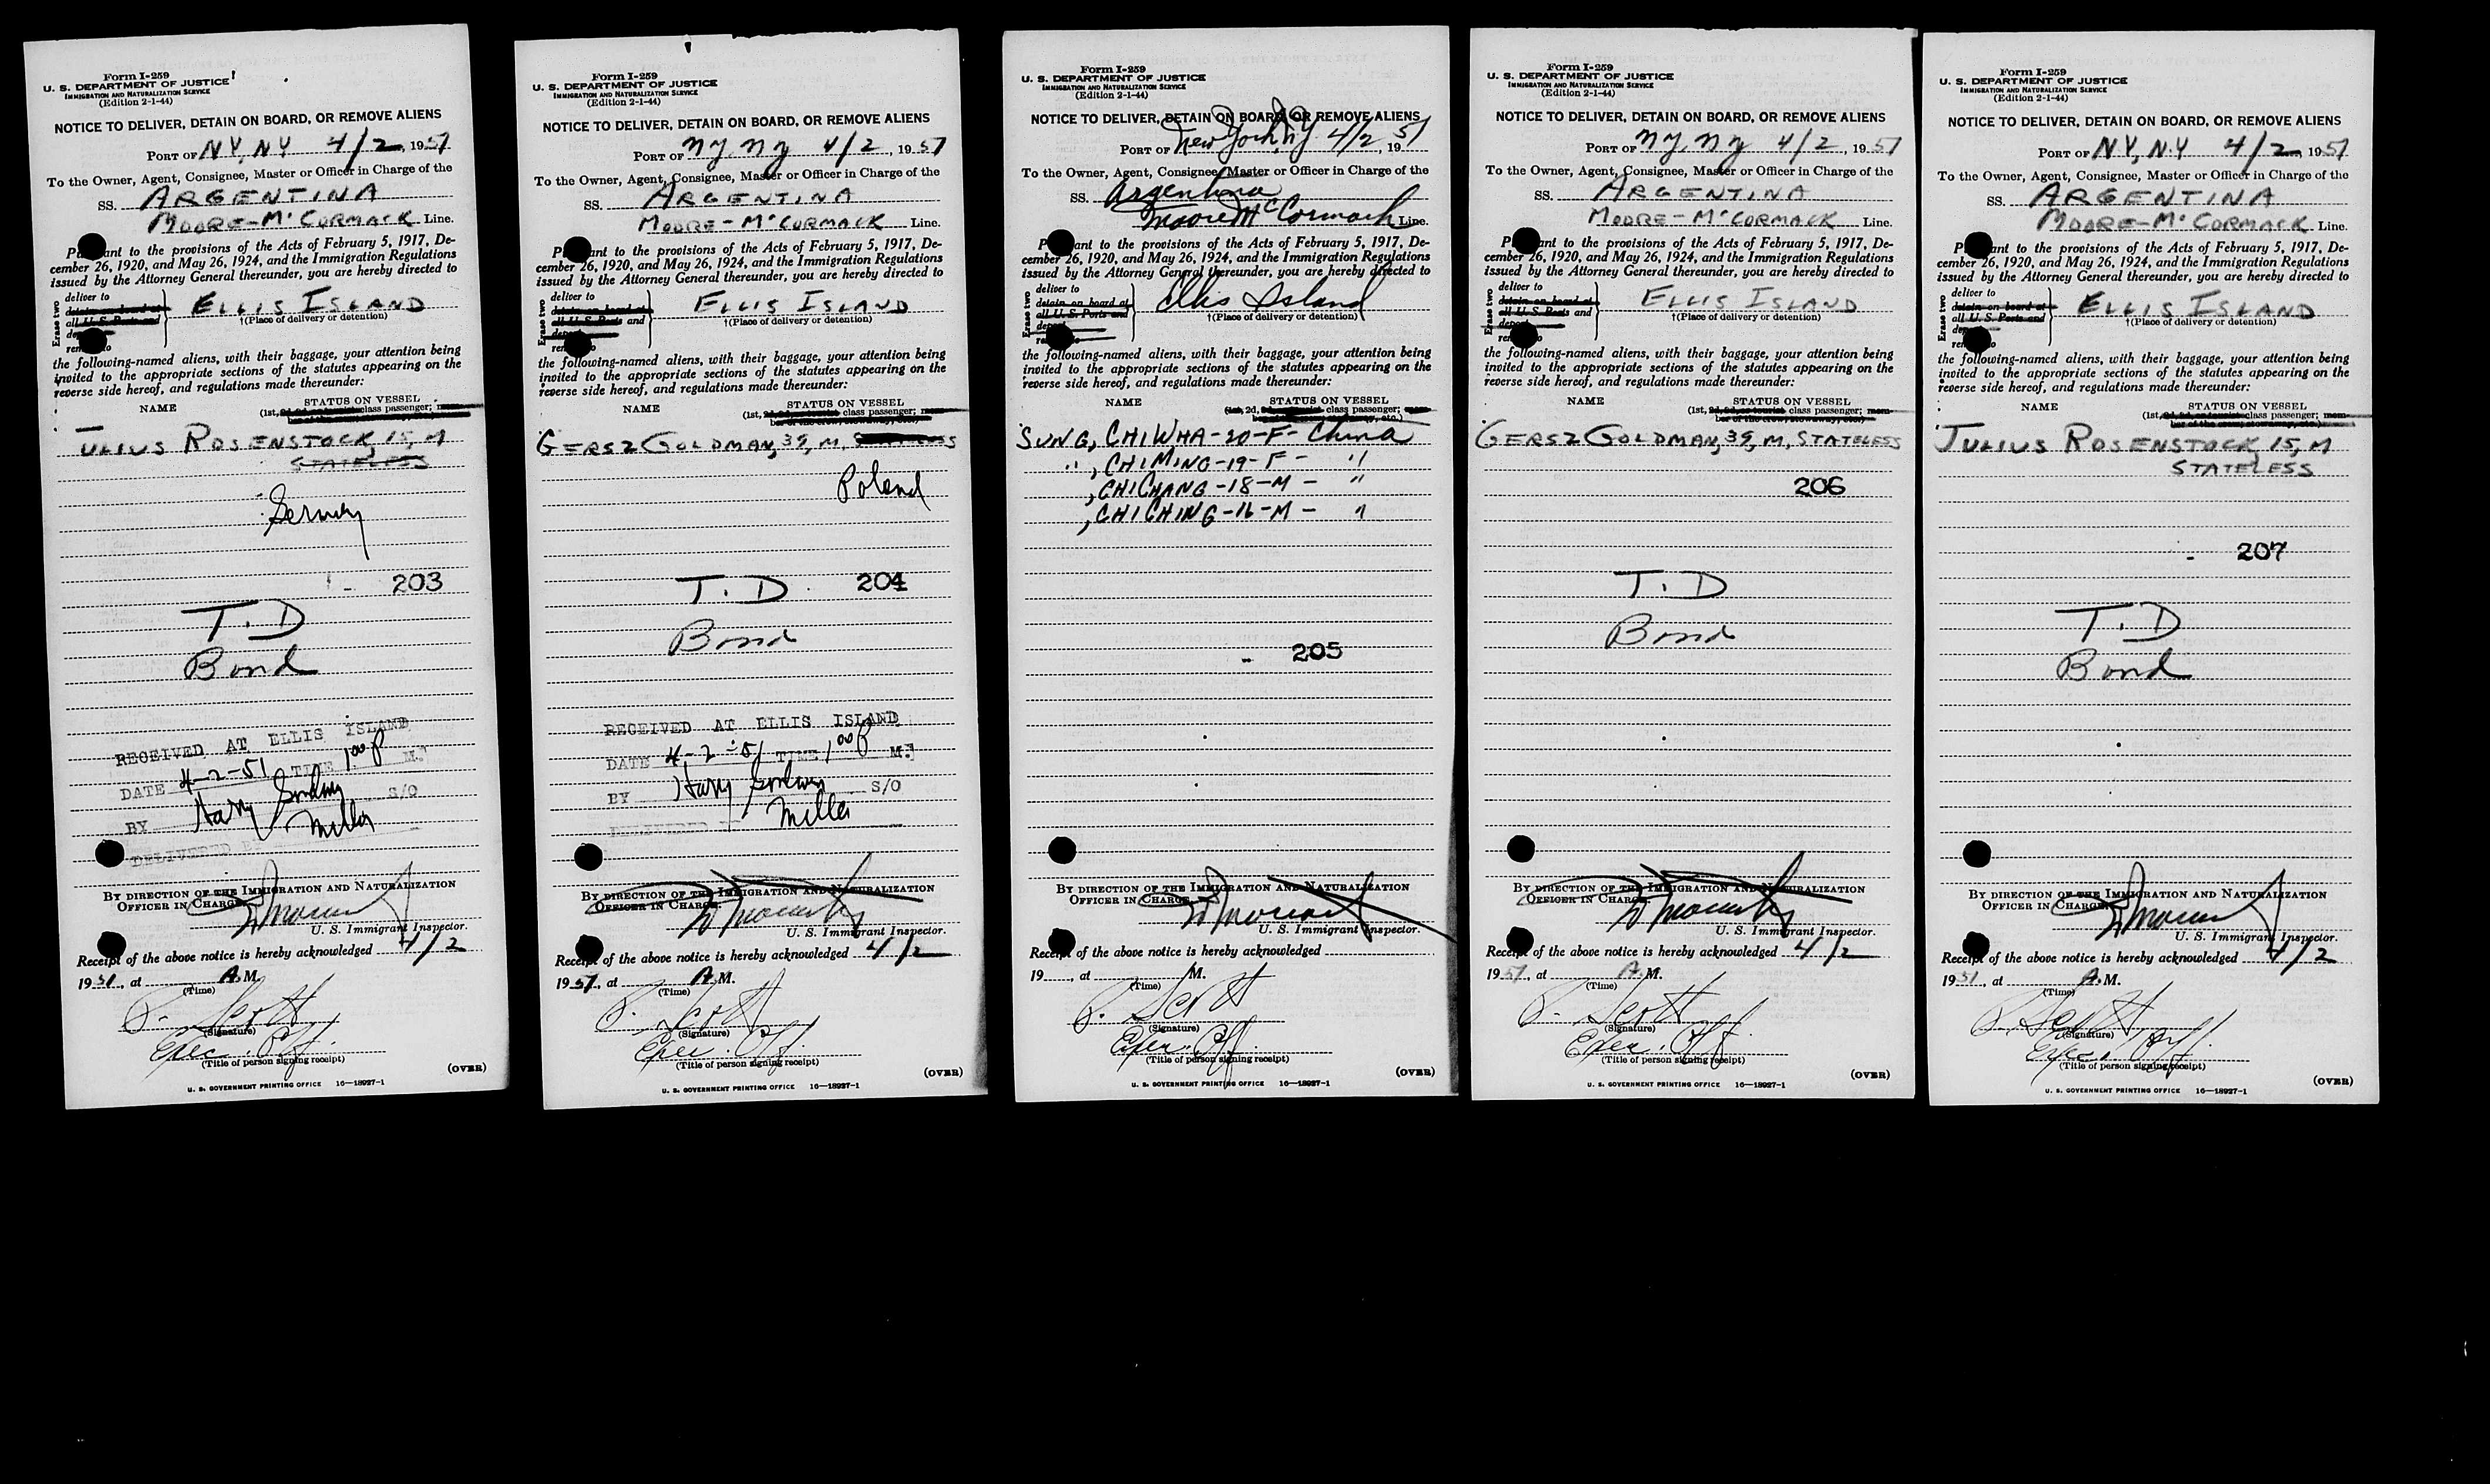 Form I-259
U. S. DEPARTMENT OF JUSTICE
IMMIGRATION AND NATURALIZATION SERVICE
(Edition 2-1-44)
NOTICE TO DELIVER, DETAIN ON BOARD, OR REMOVE ALIENS
PORT OF N.Y., N.Y. 4/2, 1951
To the Owner, Agent, Consignee, Master or Officer in Charge of the
SS. ARGENTINA
MOORE-McCORMACK Line.
Pu ant to the provisions of the Acts of February 5, 1917, De-
cember 26, 1920, and May 26, 1924, and the Immigration Regulations
issued by the Attorney General thereunder, you are hereby directed to
Erase two
deliver to
detain on board at
all U. S. Ports and
ELLIS ISLAND
†(Place of delivery or detention)
the following-named aliens, with their baggage, your attention being
invited to the appropriate sections of the statutes appearing on the
reverse side hereof, and regulations made thereunder:
NAME STATUS ON VESSEL
(1st, 2d, 3d, or tourist class passenger; mem-
ber of the crew, stowaway, etc.)
JULIUS ROSENSTOCK, 15, M
STATELESS
203
T.D
Bond
RECEIVED AT ELLIS ISLAND
DATE 4-2-51 TIME 1 00 P M.
BY Harry S/O
Miller
DELIVERED
BY DIRECTION OF THE IMMIGRATION AND NATURALIZATION
OFFICER IN CHARGE.
U. S. Immigrant Inspector.
Receipt of the above notice is hereby acknowledged 4/2
1951, at A.M.
(Time)
Scott
(Signature)
Exec. Off.
(Title of person signing receipt)
(OVER)
U. S. GOVERNMENT PRINTING OFFICE 16—18927-1
Form I-259
U. S. DEPARTMENT OF JUSTICE
IMMIGRATION AND NATURALIZATION SERVICE
(Edition 2-1-44)
NOTICE TO DELIVER, DETAIN ON BOARD, OR REMOVE ALIENS
PORT OF NY, NY 4/2, 1951
To the Owner, Agent, Consignee, Master or Officer in Charge of the
SS. ARGENTINA
MOORE-McCORMACK Line.
P ant to the provisions of the Acts of February 5, 1917, De-
cember 26, 1920, and May 26, 1924, and the Immigration Regulations
issued by the Attorney General thereunder, you are hereby directed to
Erase two
deliver to
detain on board at
all U. S. Ports and
ELLIS ISLAND
†(Place of delivery or detention)
the following-named aliens, with their baggage, your attention being
invited to the appropriate sections of the statutes appearing on the
reverse side hereof, and regulations made thereunder:
NAME STATUS ON VESSEL
(1st, 2d, 3d, or tourist class passenger; mem-
ber of the crew, stowaway, etc.)
GERSZ GOLDMAN, 39, M, STATELESS
Poland
T.D. 204
Bond
RECEIVED AT ELLIS ISLAND
DATE 4-2-51 TIME 1 00 P M.
BY Harry S/O
Miller
BY DIRECTION OF THE IMMIGRATION AND NATURALIZATION
OFFICER IN CHARGE.
U. S. Immigrant Inspector.
Receipt of the above notice is hereby acknowledged 4/2
1951, at A.M.
(Time)
Scott
(Signature)
Exec. Off.
(Title of person signing receipt)
(OVER)
U. S. GOVERNMENT PRINTING OFFICE 16—18927-1
Form I-259
U. S. DEPARTMENT OF JUSTICE
IMMIGRATION AND NATURALIZATION SERVICE
(Edition 2-1-44)
NOTICE TO DELIVER, DETAIN ON BOARD, OR REMOVE ALIENS
PORT OF New York, NY 4/2, 1951
To the Owner, Agent, Consignee, Master or Officer in Charge of the
SS. Argentina
Moore McCormack Line.
P ant to the provisions of the Acts of February 5, 1917, De-
cember 26, 1920, and May 26, 1924, and the Immigration Regulations
issued by the Attorney General thereunder, you are hereby directed to
Erase two
deliver to
detain on board at
all U. S. Ports and
Ellis Island
†(Place of delivery or detention)
the following-named aliens, with their baggage, your attention being
invited to the appropriate sections of the statutes appearing on the
reverse side hereof, and regulations made thereunder:
NAME STATUS ON VESSEL
(1st, 2d, 3d, or tourist class passenger; mem-
ber of the crew, stowaway, etc.)
SUNG, CHI WHA-20-F- China
" , CHI MING-19-F- "
, CHI CHANG-18-M- "
, CHI CHING-16-M- "
205
BY DIRECTION OF THE IMMIGRATION AND NATURALIZATION
OFFICER IN CHARGE.
U. S. Immigrant Inspector.
Receipt of the above notice is hereby acknowledged
19 , at M.
(Time)
Scott
(Signature)
Exec. Off.
(Title of person signing receipt)
(OVER)
U. S. GOVERNMENT PRINTING OFFICE 16—18927-1
Form I-259
U. S. DEPARTMENT OF JUSTICE
IMMIGRATION AND NATURALIZATION SERVICE
(Edition 2-1-44)
NOTICE TO DELIVER, DETAIN ON BOARD, OR REMOVE ALIENS
PORT OF NY, NY 4/2, 1951
To the Owner, Agent, Consignee, Master or Officer in Charge of the
SS. ARGENTINA
MOORE-McCORMACK Line.
P ant to the provisions of the Acts of February 5, 1917, De-
cember 26, 1920, and May 26, 1924, and the Immigration Regulations
issued by the Attorney General thereunder, you are hereby directed to
Erase two
deliver to
detain on board at
all U. S. Ports and
ELLIS ISLAND
†(Place of delivery or detention)
the following-named aliens, with their baggage, your attention being
invited to the appropriate sections of the statutes appearing on the
reverse side hereof, and regulations made thereunder:
NAME STATUS ON VESSEL
(1st, 2d, 3d, or tourist class passenger; mem-
ber of the crew, stowaway, etc.)
GERSZ GOLDMAN, 39, M, STATELESS
206
T.D
Bond
BY DIRECTION OF THE IMMIGRATION AND NATURALIZATION
OFFICER IN CHARGE.
U. S. Immigrant Inspector.
Receipt of the above notice is hereby acknowledged 4/2
1951, at A.M.
(Time)
Scott
(Signature)
Exec. Off.
(Title of person signing receipt)
(OVER)
U. S. GOVERNMENT PRINTING OFFICE 16—18927-1
Form I-259
U. S. DEPARTMENT OF JUSTICE
IMMIGRATION AND NATURALIZATION SERVICE
(Edition 2-1-44)
NOTICE TO DELIVER, DETAIN ON BOARD, OR REMOVE ALIENS
PORT OF N.Y., N.Y. 4/2, 1951
To the Owner, Agent, Consignee, Master or Officer in Charge of the
SS. ARGENTINA
MOORE-McCORMACK Line.
P ant to the provisions of the Acts of February 5, 1917, De-
cember 26, 1920, and May 26, 1924, and the Immigration Regulations
issued by the Attorney General thereunder, you are hereby directed to
Erase two
deliver to
detain on board at
all U. S. Ports and
ELLIS ISLAND
†(Place of delivery or detention)
the following-named aliens, with their baggage, your attention being
invited to the appropriate sections of the statutes appearing on the
reverse side hereof, and regulations made thereunder:
NAME STATUS ON VESSEL
(1st, 2d, 3d, or tourist class passenger; mem-
ber of the crew, stowaway, etc.)
JULIUS ROSENSTOCK, 15, M
STATELESS
207
T.D
Bond
BY DIRECTION OF THE IMMIGRATION AND NATURALIZATION
OFFICER IN CHARGE.
U. S. Immigrant Inspector.
Receipt of the above notice is hereby acknowledged 4/2
1951, at A.M.
(Time)
Scott
(Signature)
Exec. Off.
(Title of person signing receipt)
(OVER)
U. S. GOVERNMENT PRINTING OFFICE 16—18927-1